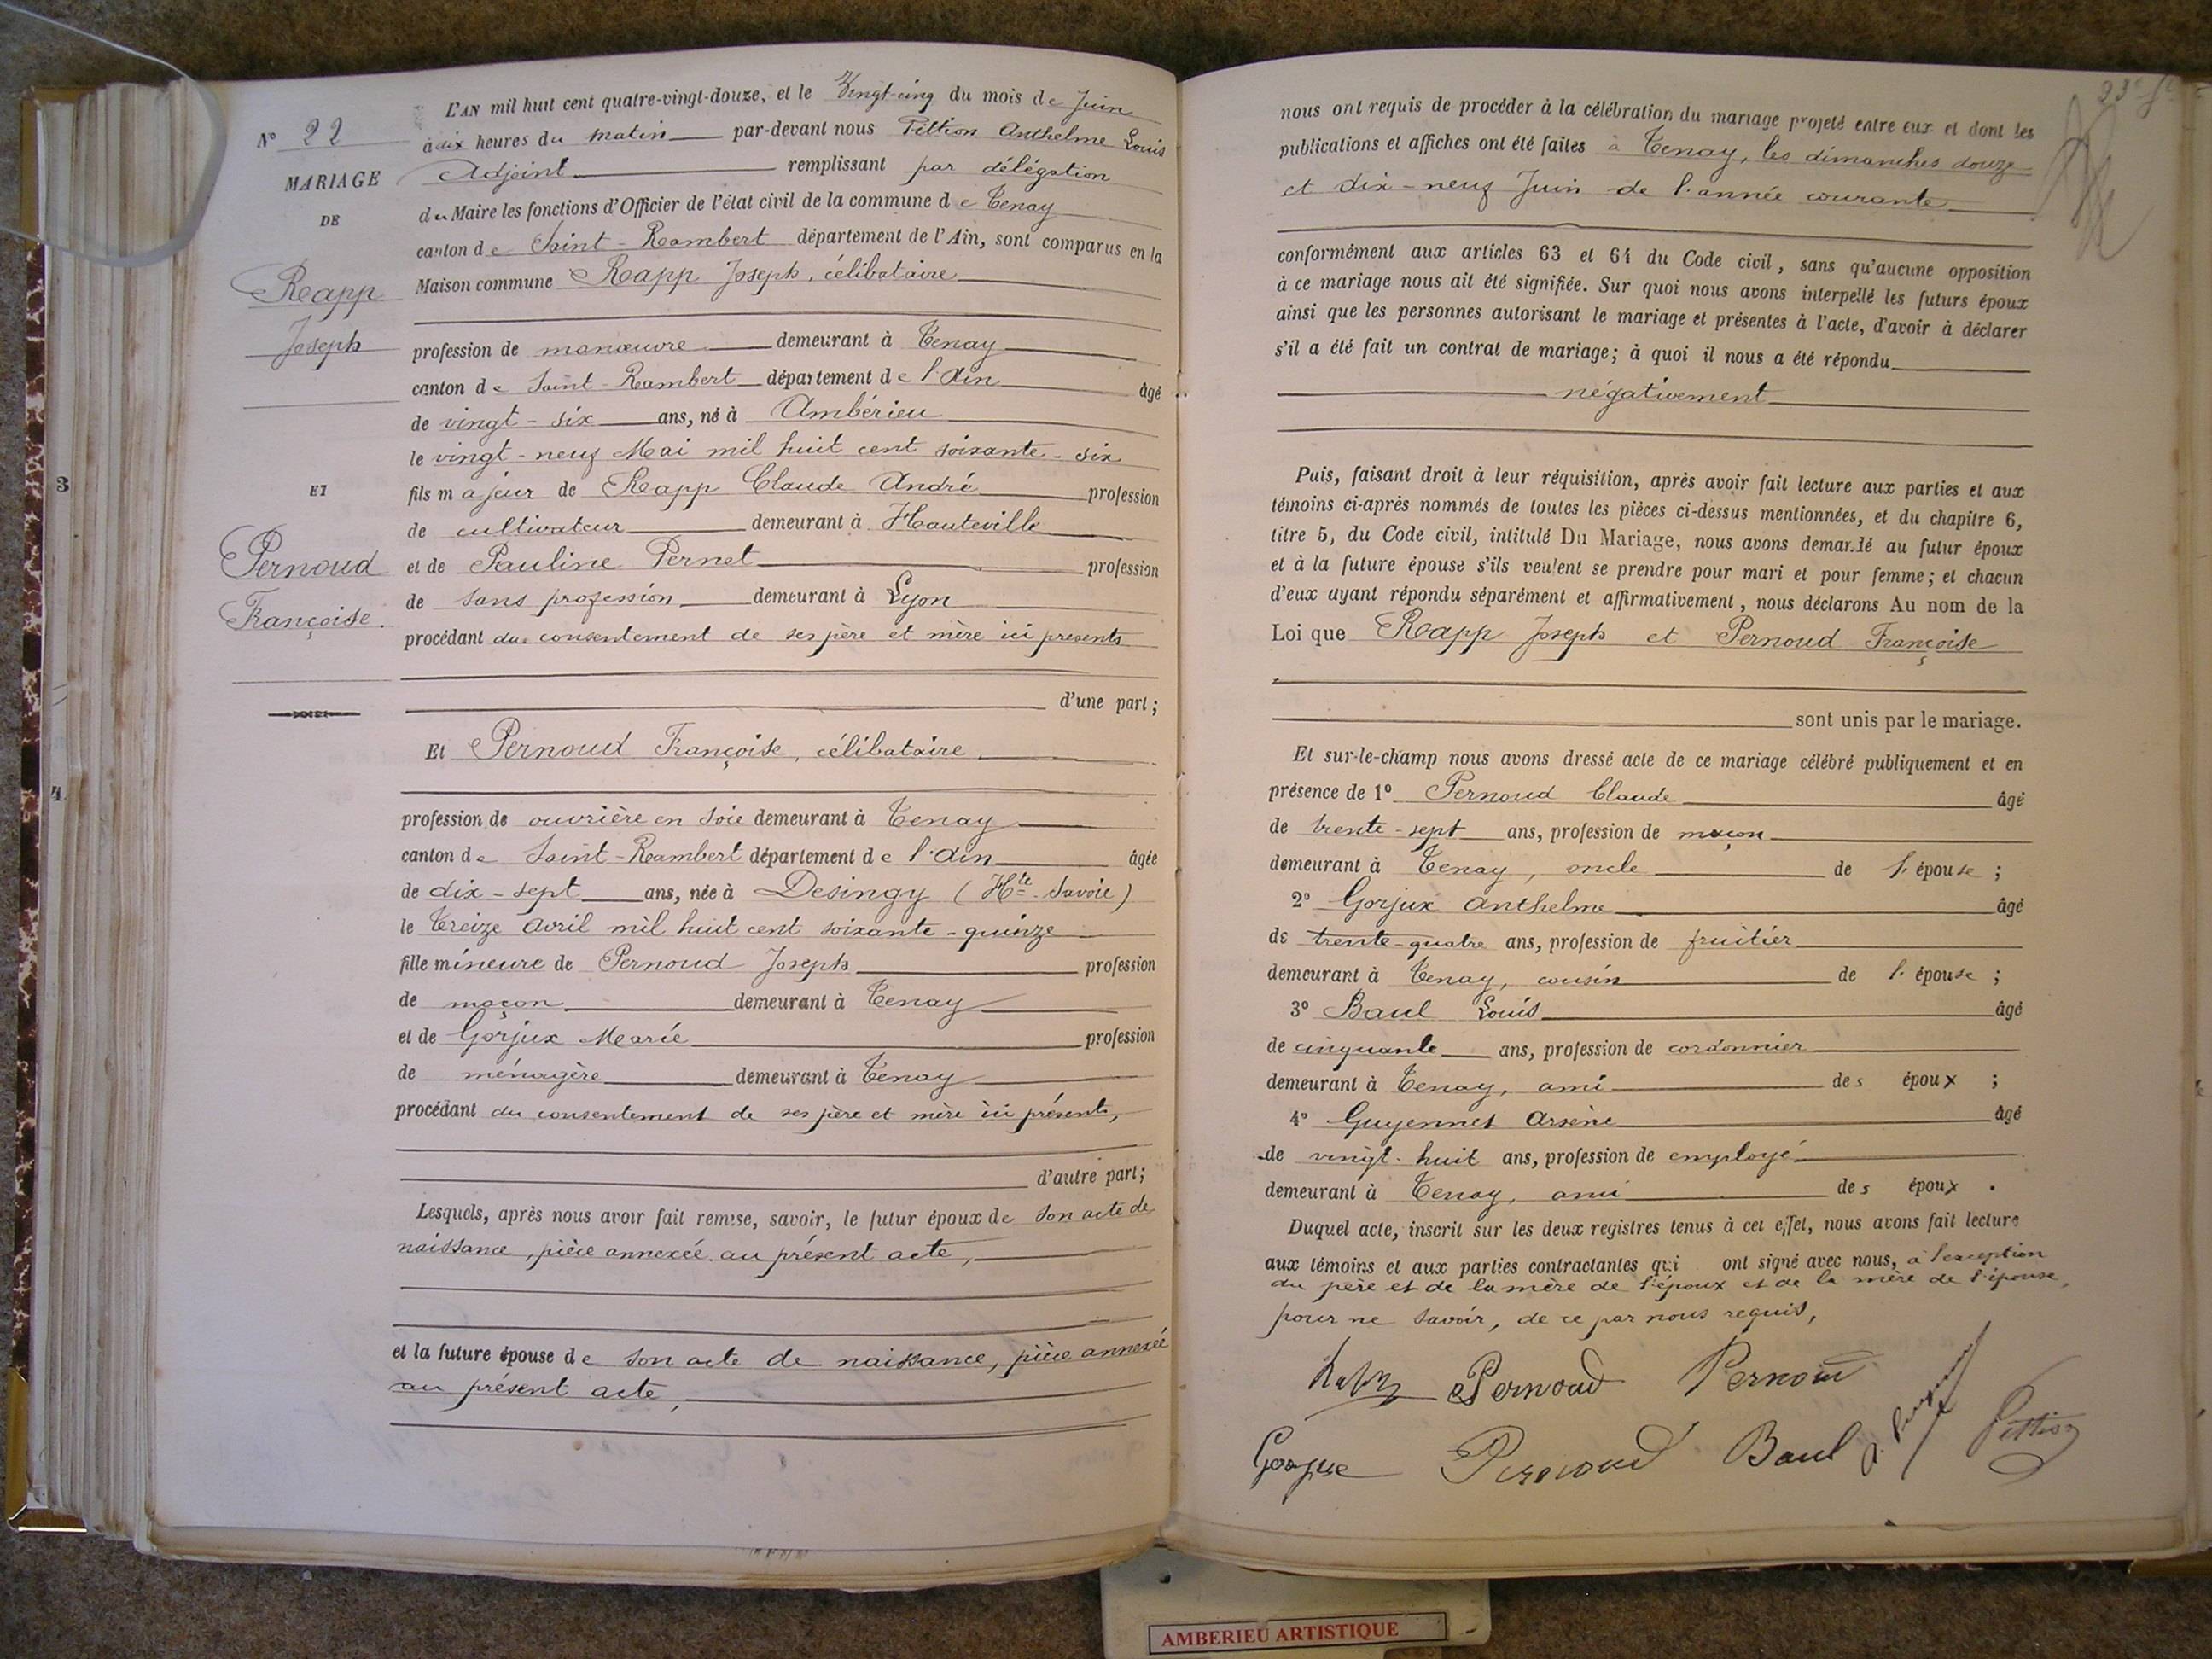 L'AN mil huit cent quatre-vingt-douze, et le Vingt-cinq du mois de Juin
N° 22
à dix heures du matin par-devant nous Pittion Anthelme Louis
Adjoint remplissant par délégation
MARIAGE
DE
du Maire les fonctions d'Officier de l'état civil de la commune de Tenay
canton de Saint-Rambert département de l'Ain, sont comparus en la
Maison commune Rapp Joseph, célibataire
Rapp
Joseph
profession de manœuvre demeurant à Tenay
canton de Saint-Rambert département de l'Ain âgé
de vingt-six ans, né à Ambérieu
le vingt-neuf Mai mil huit cent soixante-six
3
ET
fils majeur de Rapp Claude André profession
de cultivateur demeurant à Hauteville
Pernoud
Françoise.
et de Pauline Pernet profession
de sans profession demeurant à Lyon
procédant du consentement de ses père et mère ici présents
d'une part;
Et Pernoud Françoise, célibataire
4
profession de ouvrière en soie demeurant à Tenay
canton de Saint-Rambert département de l'Ain âgée
de dix-sept ans, née à Desingy (Hte-Savoie)
le Treize avril mil huit cent soixante-quinze
fille mineure de Pernoud Joseph profession
de maçon demeurant à Tenay
et de Gorjux Marie profession
de ménagère demeurant à Tenay
procédant du consentement de ses père et mère ici présents,
d'autre part;
Lesquels, après nous avoir fait remise, savoir, le futur époux de son acte de
naissance, pièce annexée au présent acte,
et la future épouse de son acte de naissance, pièce annexée
au présent acte,
nous ont requis de procéder à la célébration du mariage projeté entre eux et dont les
publications et affiches ont été faites à Tenay, les dimanches douze
et dix-neuf Juin de l'année courante
conformément aux articles 63 et 64 du Code civil, sans qu'aucune opposition
à ce mariage nous ait été signifiée. Sur quoi nous avons interpellé les futurs époux
ainsi que les personnes autorisant le mariage et présentes à l'acte, d'avoir à déclarer
s'il a été fait un contrat de mariage; à quoi il nous a été répondu
négativement
Puis, faisant droit à leur réquisition, après avoir fait lecture aux parties et aux
témoins ci-après nommés de toutes les pièces ci-dessus mentionnées, et du chapitre 6,
titre 5, du Code civil, intitulé Du Mariage, nous avons demandé au futur époux
et à la future épouse s'ils veulent se prendre pour mari et pour femme; et chacun
d'eux ayant répondu séparément et affirmativement, nous déclarons Au nom de la
Loi que Rapp Joseph et Pernoud Françoise
sont unis par le mariage.
Et sur-le-champ nous avons dressé acte de ce mariage célébré publiquement et en
présence de 1° Pernoud Claude âgé
de trente-sept ans, profession de maçon
demeurant à Tenay, oncle de l'épouse;
2° Gorjux Anthelme âgé
de trente-quatre ans, profession de fruitier
demeurant à Tenay, cousin de l'épouse;
3° Baul Louis âgé
de cinquante ans, profession de cordonnier
demeurant à Tenay, ami des époux;
4° Guyennet Arsène âgé
de vingt-huit ans, profession de employé
demeurant à Tenay, ami des époux.
Duquel acte, inscrit sur les deux registres tenus à cet effet, nous avons fait lecture
aux témoins et aux parties contractantes qui ont signé avec nous, à l'exception
du père et de la mère de l'époux et de la mère de l'épouse,
pour ne savoir, de ce par nous requis,
Pernoud Pernoud
Pernoud Baul Pittion
AMBERIEU ARTISTIQUE